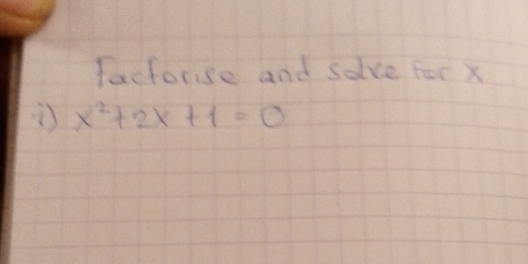 Factorise and solve for x
i) x²+2x+1=0